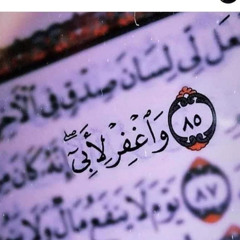 عَل لِّى لِسَانَ صِدْقٍ فِى ٱلْأٓخِ
٨٥ وَٱغْفِرْ لِأَبِىٓ إِنَّهُۥ كَانَ مِ
٨٧ يَوْمَ لَا يَنفَعُ مَالٌ وَلَا